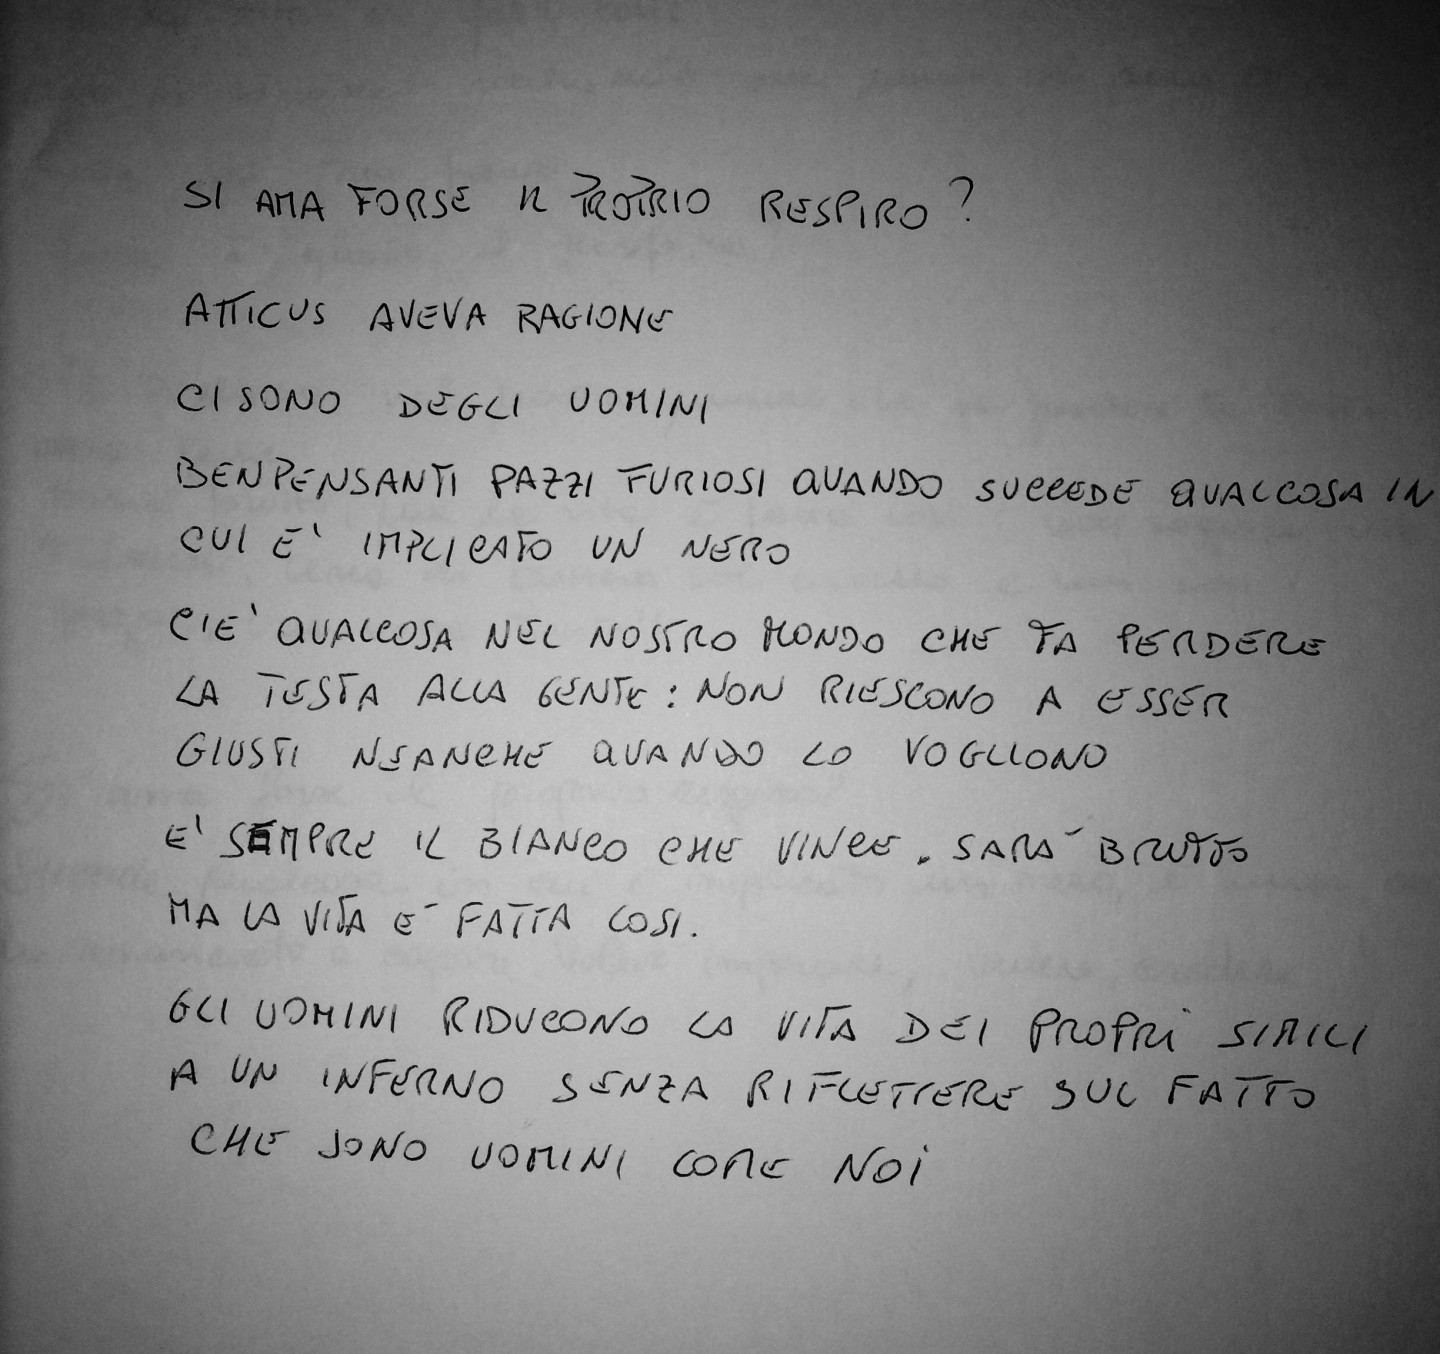 SI AMA FORSE IL PROPRIO RESPIRO?
ATTICUS AVEVA RAGIONE
CI SONO DEGLI UOMINI
BENPENSANTI PAZZI FURIOSI QUANDO SUCCEDE QUALCOSA IN
CUI E' IMPLICATO UN NERO
C'IE' QUALCOSA NEL NOSTRO MONDO CHE FA PERDERE
LA TESTA ALLA GENTE: NON RIESCONO A ESSER
GIUSTI NEANCHE QUANDO LO VOGLIONO
E' SEMPRE IL BIANCO CHE VINCE. SARA' BRUTTO
MA LA VITA E' FATTA COSI.
GLI UOMINI RIDUCONO LA VITA DEI PROPRI SIMILI
A UN INFERNO SENZA RIFLETTERE SUL FATTO
CHE SONO UOMINI COME NOI